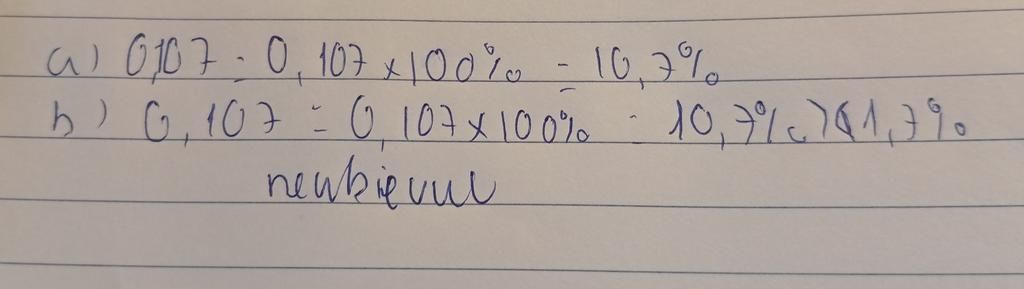 a) 0,107 = 0,107 × 100% = 10,7%
b) 0,107 = 0,107 × 100% = 10,7%